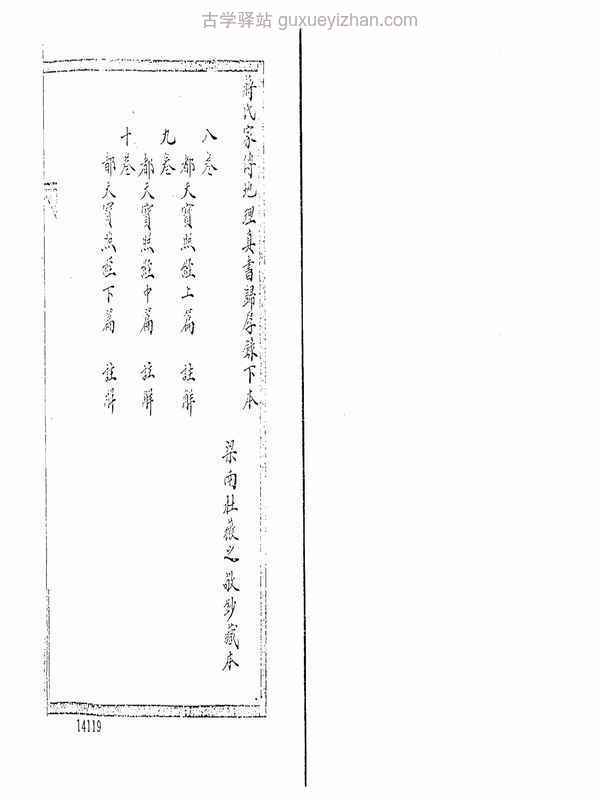 古学驿站 guxueyizhan.com
蔣氏家傳地理真書歸厚錄下本
梁南杜薇之敬鈔藏本
八卷
都天寶照經上篇 註解
九卷
都天寶照經中篇 註解
十卷
都天寶照經下篇 註解
14119